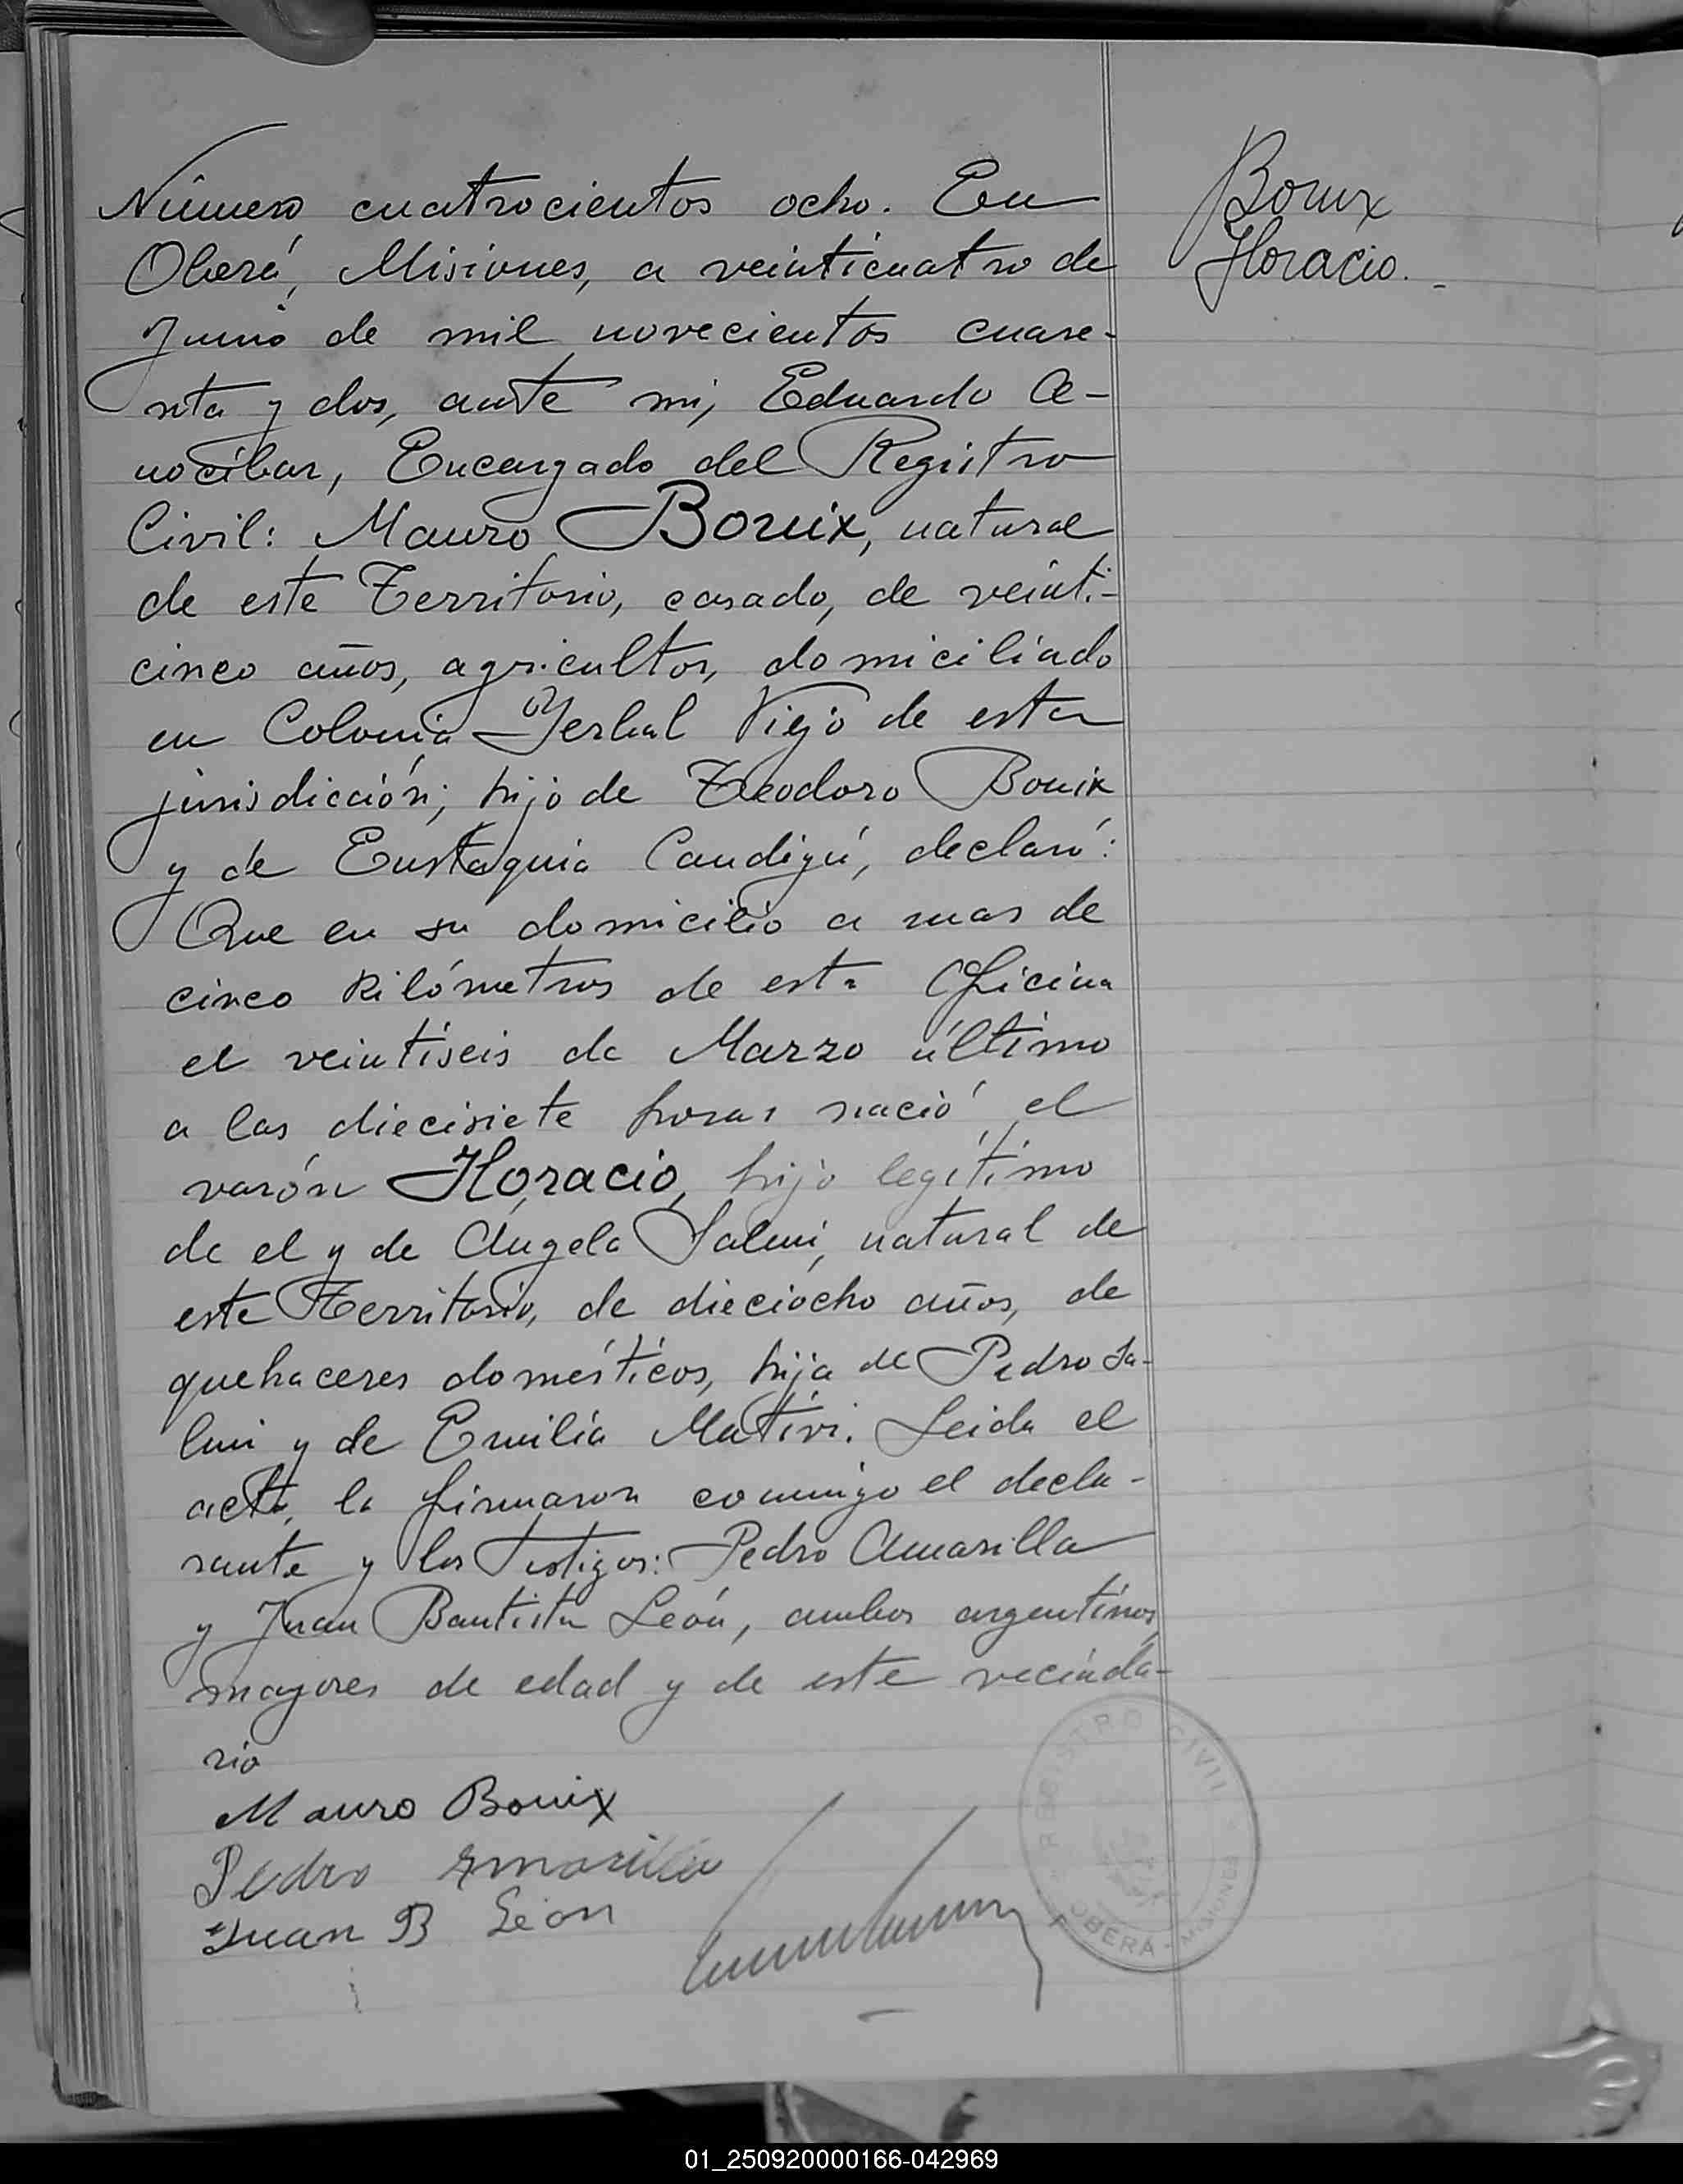 Número cuatrocientos ocho. En
Oberá, Misiones, a veinticuatro de
Junio de mil novecientos cuare-
nta y dos, ante mi, Eduardo A-
nocíbar, Encargado del Registro
Civil: Mauro Bouix, natural
de este Territorio, casado, de veinti-
cinco años, agricultor, domiciliado
en Colonia Yerbal Viejo de esta
jurisdicción; hijo de Teodoro Bouix
y de Eustaquia Candigú, declaró:
Que en su domicilio a mas de
cinco kilómetros de esta Oficina
el veintiseis de Marzo último
a las diecisiete horas nació el
varón Horacio, hijo legítimo
de el y de Angela Salmi, natural de
este Territorio, de dieciocho años, de
quehaceres domésticos, hija de Pedro Sa-
lmi y de Emilia Mativi. Leida el
acta, la firmaron conmigo el decla-
rante y los Testigos: Pedro Amarilla
y Juan Bautista León, ambos argentinos,
mayores de edad y de este vecinda-
rio
Mauro Bouix
Pedro Amarilla
Juan B León
Bouix
Horacio.
REGISTRO CIVIL
OBERÁ - MISIONES
01_250920000166-042969